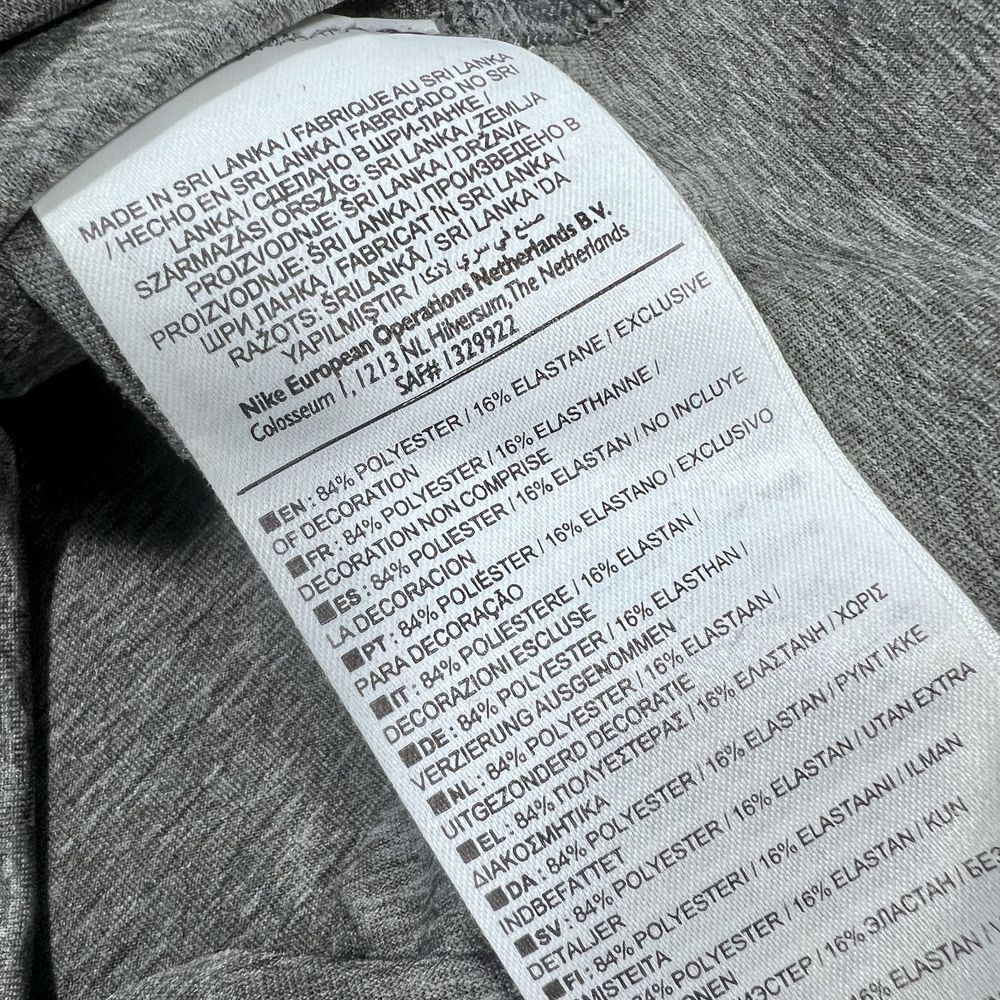 MADE IN SRI LANKA / FABRIQUE AU SRI LANKA
/ HECHO EN SRI LANKA / FABRICADO NO SRI
LANKA / СДЕЛАНО В ШРИ-ЛАНКЕ /
SZÁRMAZÁSI ORSZÁG: SRI LANKA / ZEMLJA
PROIZVODNJE: ŠRI LANKA / DRŽAVA
PROIZVODNJE: ŠRI LANKA / ПРОИЗВЕДЕНО В
ШРИ ЛАНКА / FABRICAT ÎN SRI LANKA /
RAŽOTS: ŠRILANKĀ / SRI LANKA 'DA
YAPILMIŞTIR / صنع في سري لانكا
Nike European Operations Netherlands B.V.
Colosseum 1, 1213 NL Hilversum,The Netherlands
SAF# 1329922
EN : 84% POLYESTER / 16% ELASTANE / EXCLUSIVE
OF DECORATION
FR : 84% POLYESTER / 16% ELASTHANNE /
DECORATION NON COMPRISE
ES : 84% POLIESTER / 16% ELASTAN / NO INCLUYE
LA DECORACION
PT : 84% POLIÉSTER / 16% ELASTANO / EXCLUSIVO
PARA DECORAÇÃO
IT : 84% POLIESTERE / 16% ELASTAN /
DECORAZIONI ESCLUSE
DE : 84% POLYESTER / 16% ELASTHAN /
VERZIERUNG AUSGENOMMEN
NL : 84% POLYESTER / 16% ELASTAAN /
UITGEZONDERD DECORATIE
EL : 84% ΠΟΛΥΕΣΤΕΡΑΣ / 16% ΕΛΑΣΤΑΝΗ / ΧΩΡΙΣ
ΔΙΑΚΟΣΜΗΤΙΚΑ
DA : 84% POLYESTER / 16% ELASTAN / PYNT IKKE
INDBEFATTET
SV : 84% POLYESTER / 16% ELASTAN / UTAN EXTRA
DETALJER
FI : 84% POLYESTERI / 16% ELASTAANI / ILMAN
84% POLYESTER / 16% ELASTAN / KUN
16% ЭЛАСТАН / БЕЗ
ELASTAN /